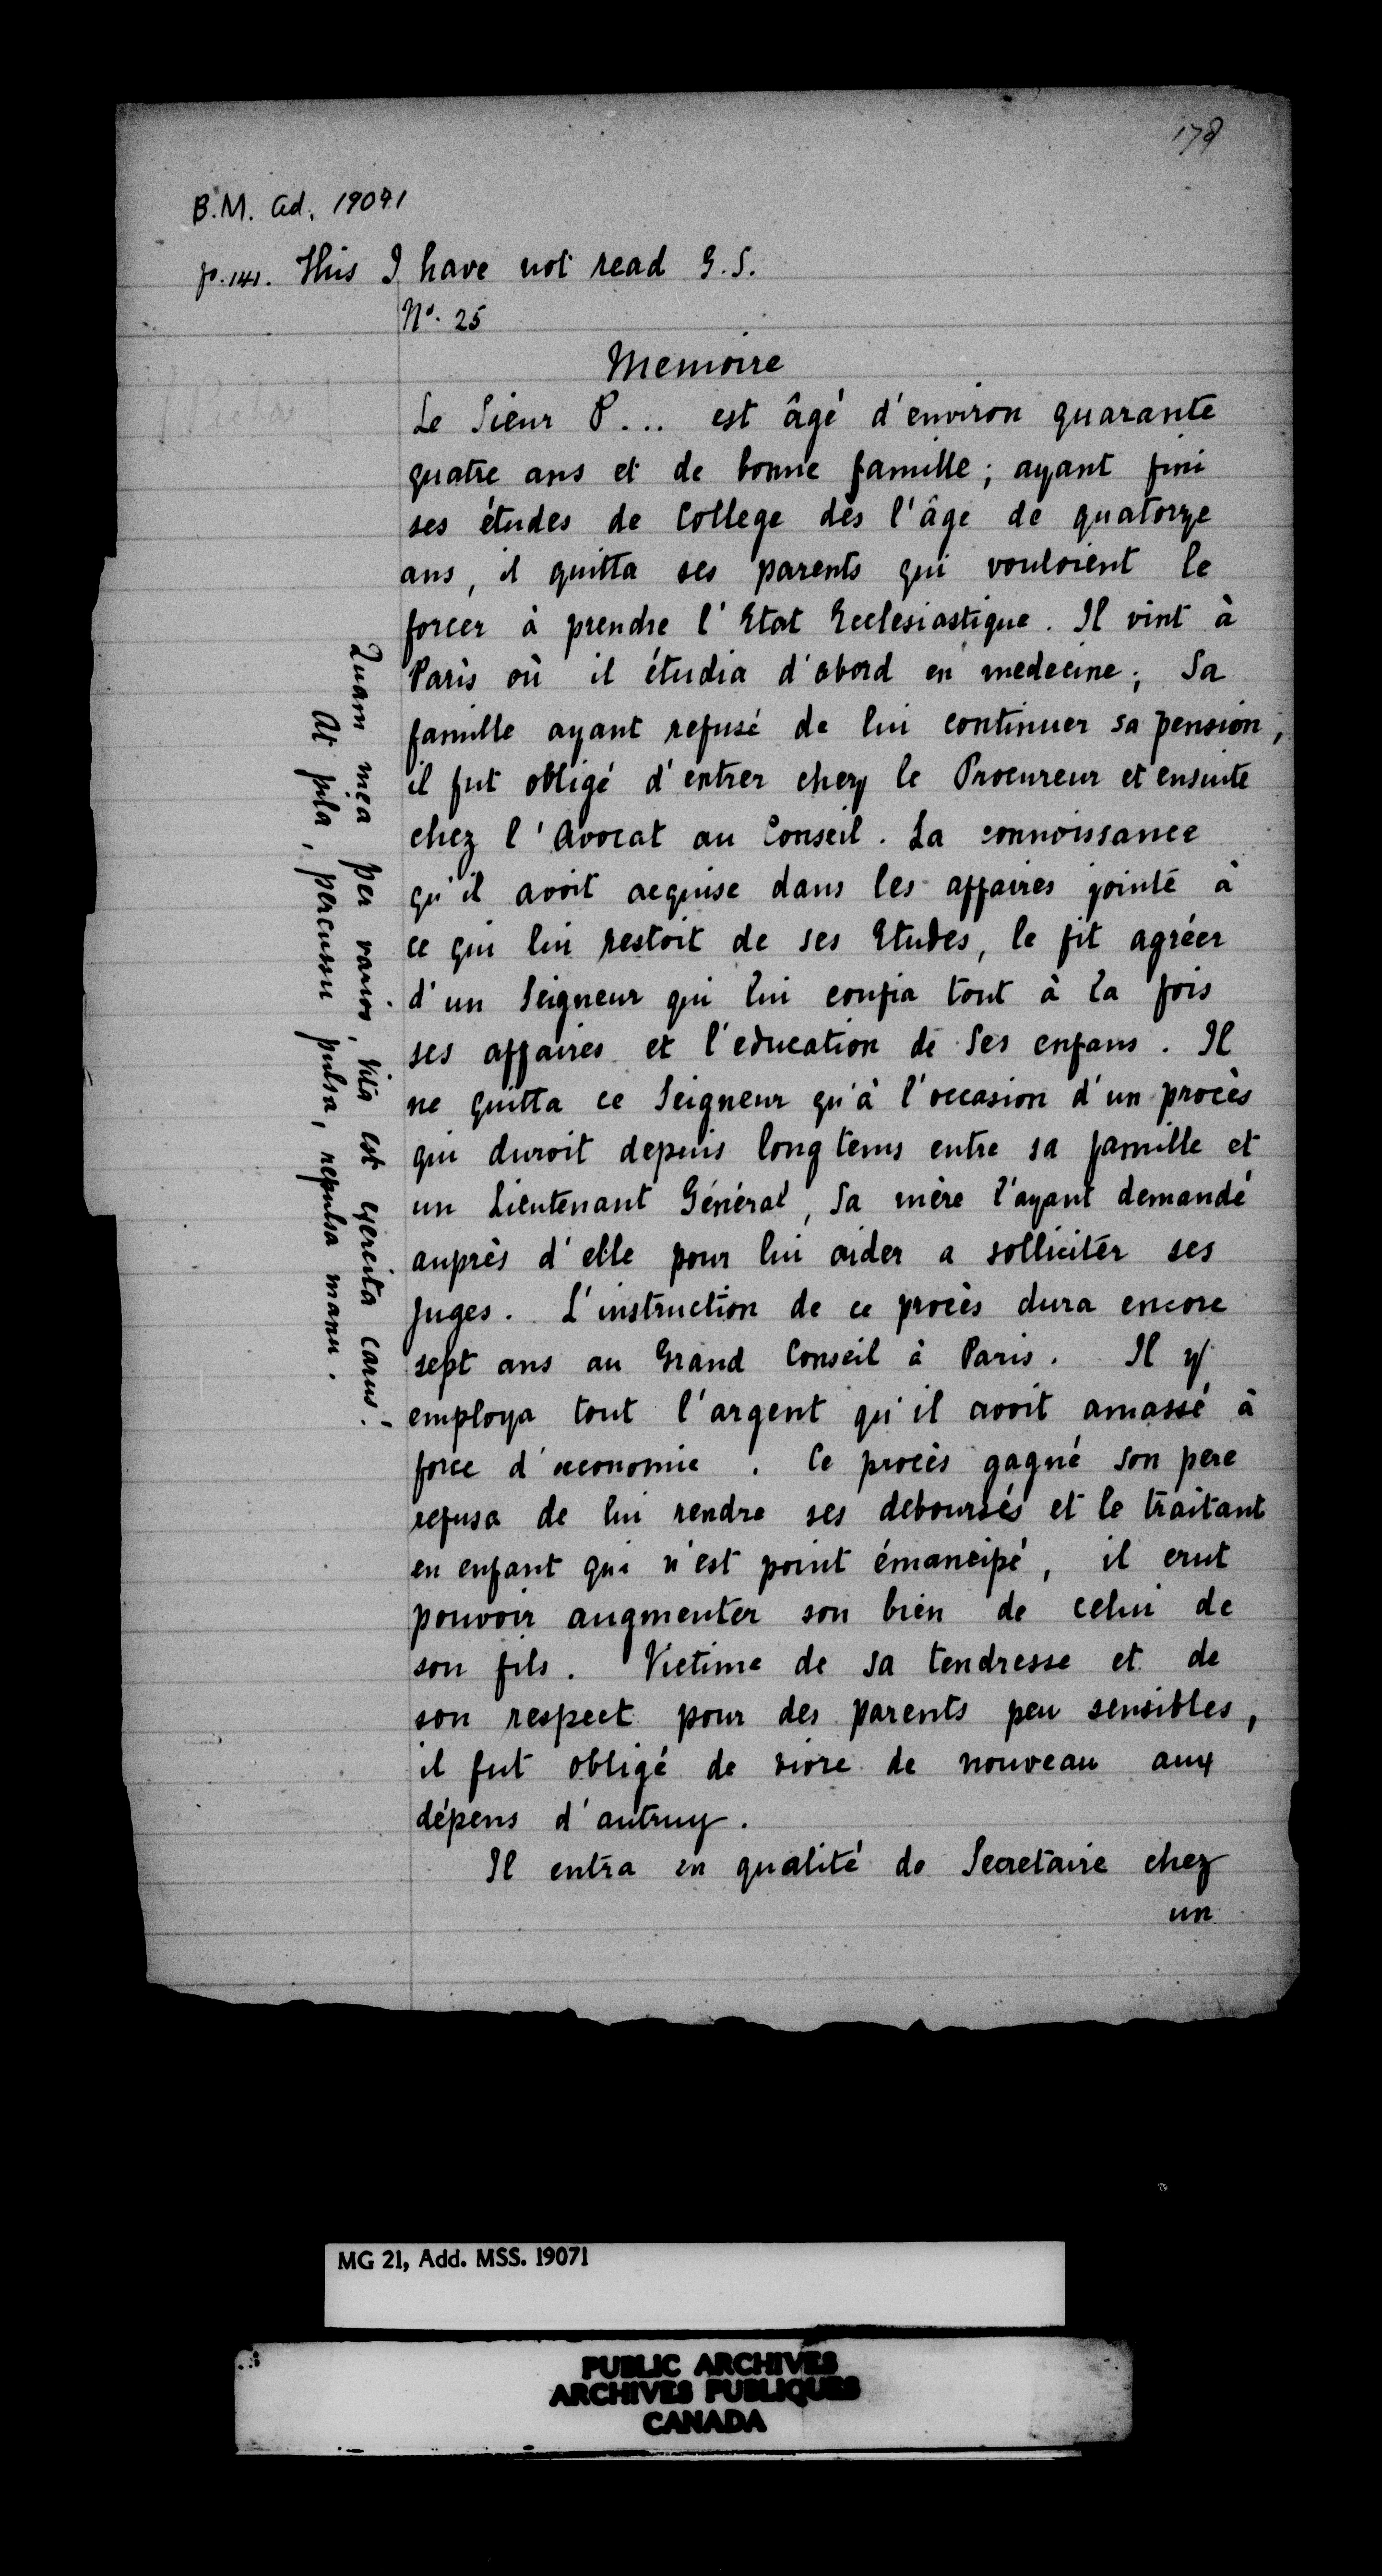 178
B.M. Ad. 19071
p. 141. This I have not read G.S.
No. 25
Memoire
Le Sieur P... est âgé d'environ quarante
quatre ans et de bonne famille; ayant fini
ses études de College dès l'âge de quatorze
ans, il quitta ses parents qui vouloient le
forcer à prendre l'Etat Ecclesiastique. Il vint à
Paris où il étudia d'abord en medecine; Sa
famille ayant refusé de lui continuer sa pension,
il fut obligé d'entrer chez le Procureur et ensuite
chez l'Avocat au Conseil. La connoissance
qu'il avoit acquise dans les affaires jointe à
ce qui lui restoit de ses Etudes, le fit agréer
d'un Seigneur qui lui confia tout à la fois
ses affaires et l'education de Ses enfans. Il
ne quitta ce Seigneur qu'à l'occasion d'un procès
qui duroit depuis longtems entre sa famille et
un Lieutenant Général, Sa mère l'ayant demandé
auprès d'elle pour lui aider a solliciter ses
Juges. L'instruction de ce procès dura encore
sept ans au Grand Conseil à Paris. Il y
employa tout l'argent qu'il avoit amassé à
force d'oeconomie. Ce procès gagné son pere
refusa de lui rendre ses deboursés et le traitant
en enfant qui n'est point émancipé, il crut
pouvoir augmenter son bien de celui de
son fils. Victime de sa tendresse et de
son respect pour des parents peu sensibles,
il fut obligé de vivre de nouveau aux
dépens d'autruy.
Il entra en qualité de Secretaire chez
un
Quam mea per varios, vita est exercita casus!
At pila, percussu pulsa, repulsa manu.
MG 21, Add. MSS. 19071
PUBLIC ARCHIVES
ARCHIVES PUBLIQUES
CANADA